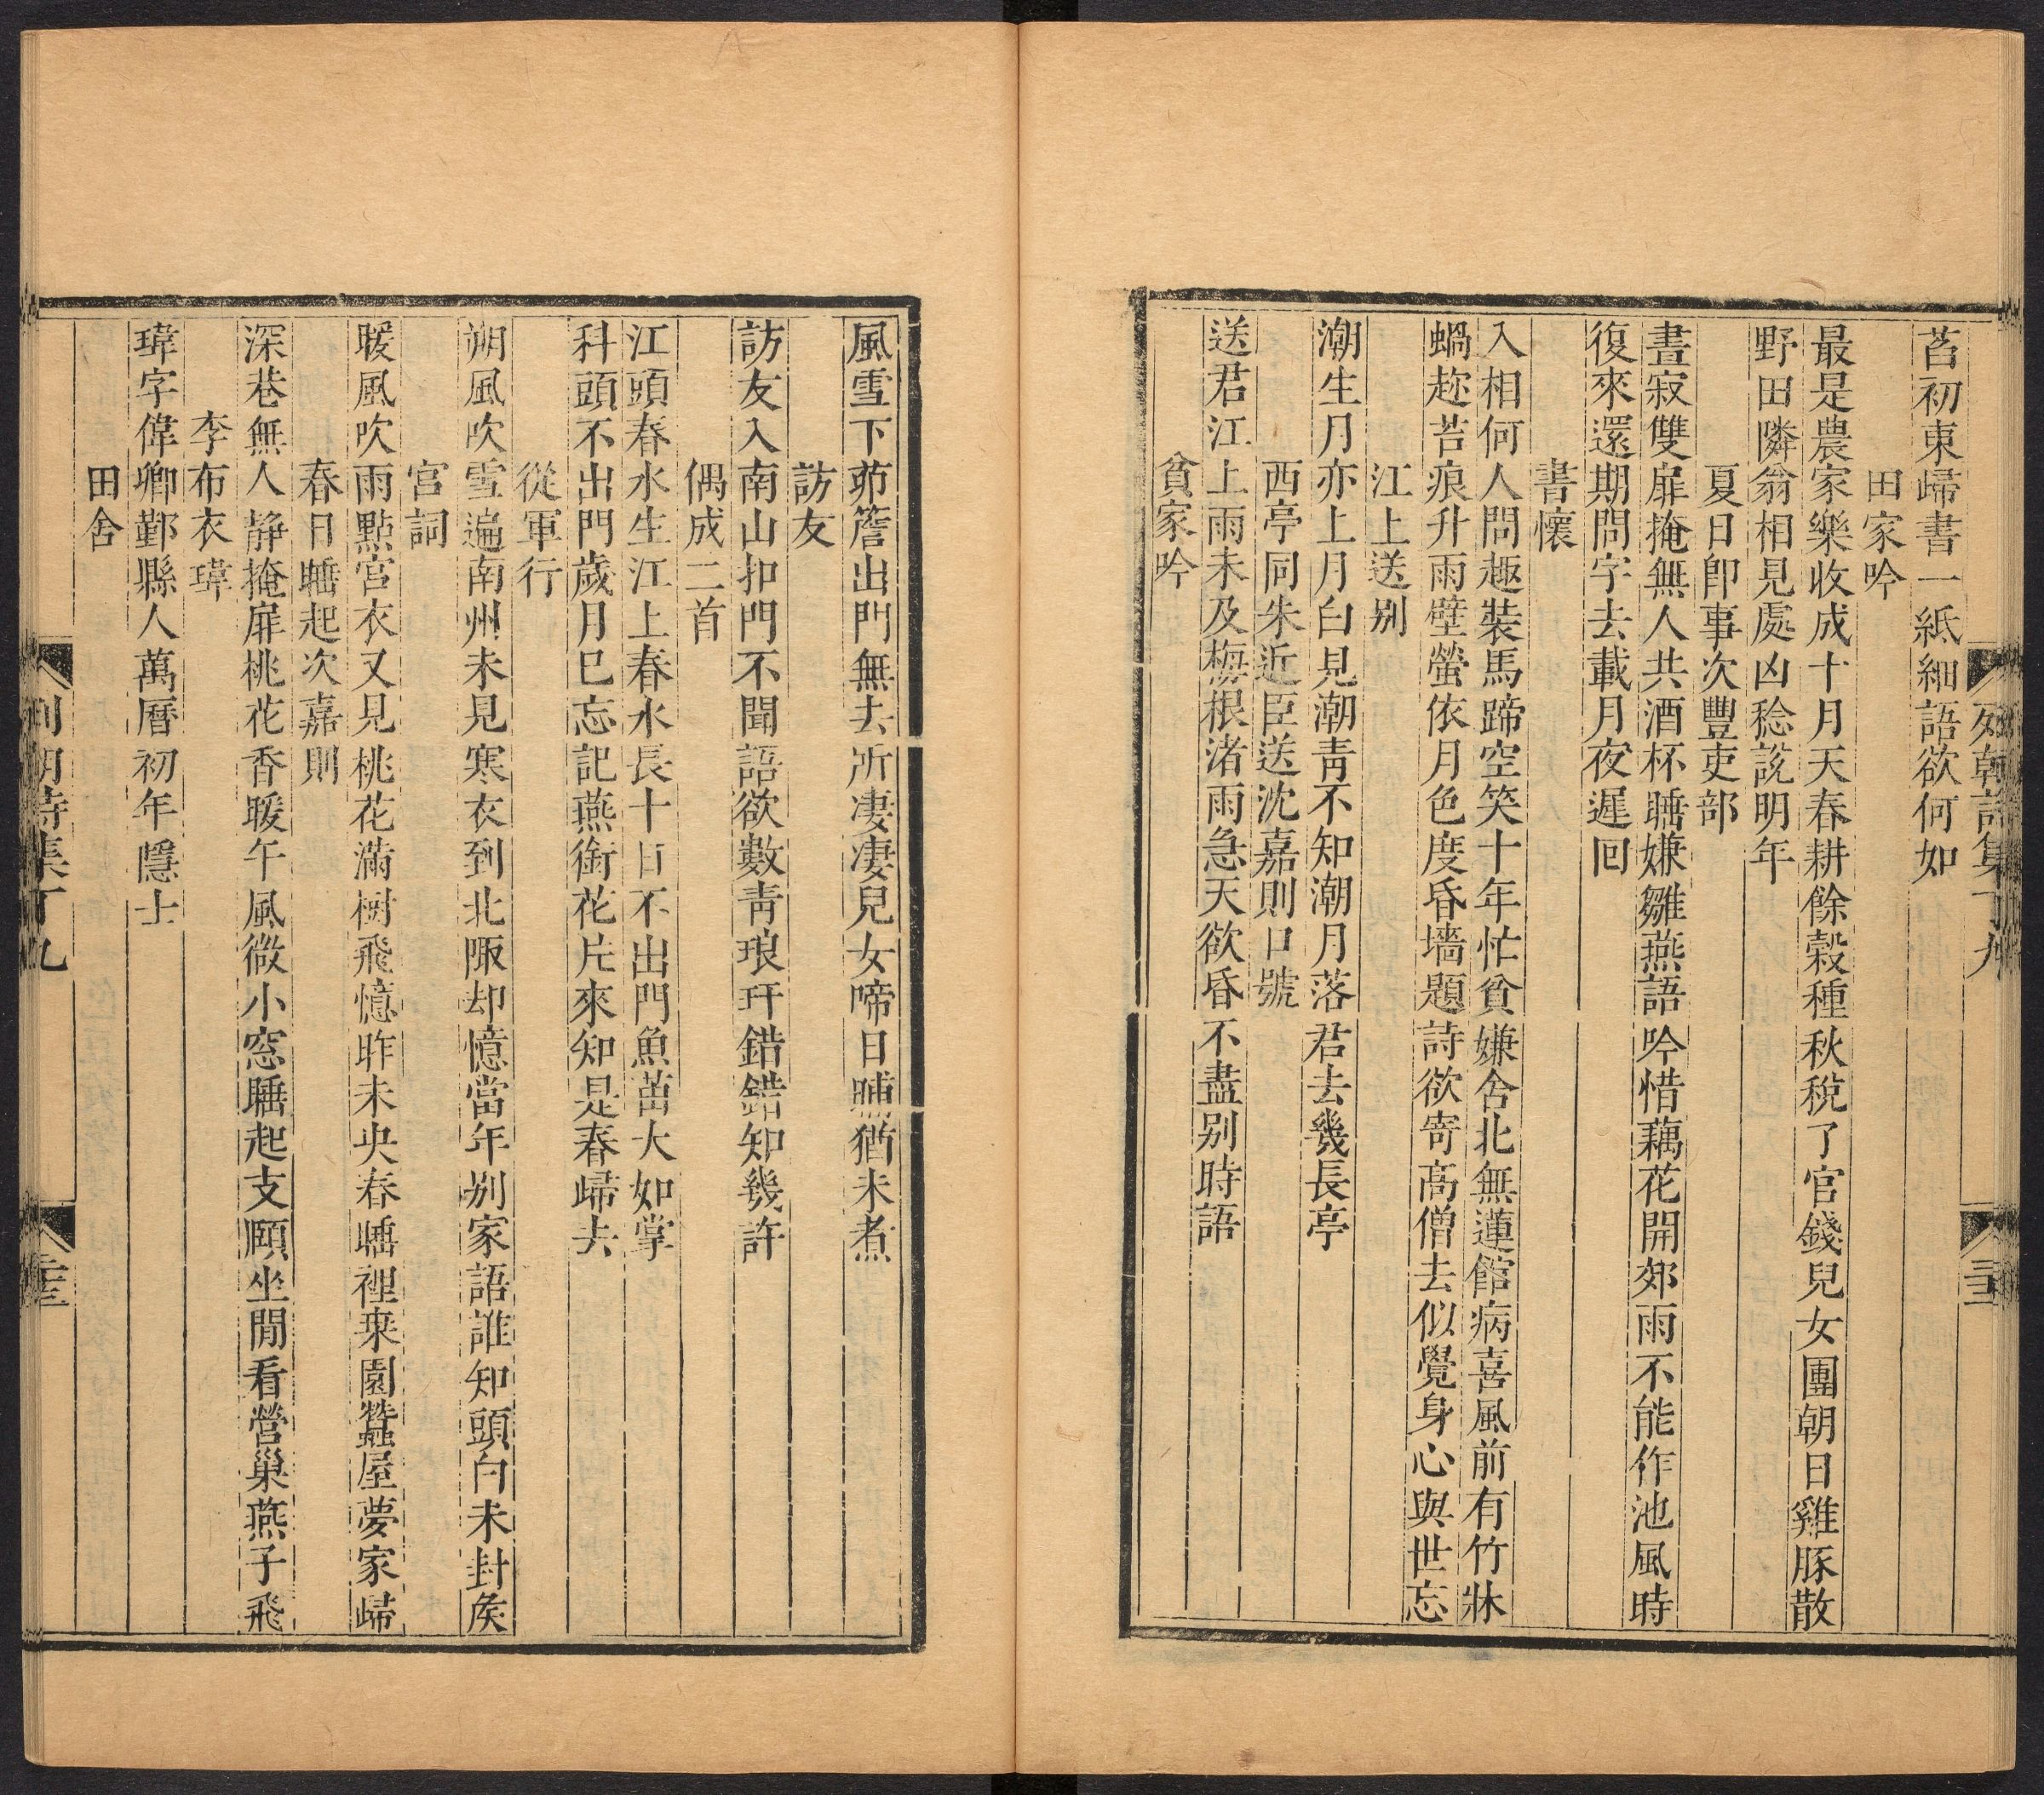 列朝詩集丁九
苕初東歸書一紙細語欲何如
田家吟
最是農家樂收成十月天春耕餘穀種秋稅了官錢兒女團朝日雞豚散
野田隣翁相見處凶稔說明年
夏日卽事次豐吏部
晝寂雙扉掩無人共酒杯睡嫌雛燕語吟惜藕花開郊雨不能作池風時
復來還期問字去載月夜遲回
書懷
入相何人問趣裝馬蹄空笑十年忙貧嫌舍北無蓮館病喜風前有竹牀
蝸趂苔痕升雨壁螢依月色度昏墻題詩欲寄高僧去似覺身心與世忘
江上送別
潮生月亦上月白見潮靑不知潮月落君去幾長亭
西亭同朱近臣送沈嘉則口號
送君江上雨未及梅根渚雨急天欲昏不盡別時語
貧家吟
風雪下茆簷出門無去所凄凄兒女啼日晡猶未煮
訪友
訪友入南山扣門不聞語欲數靑琅玕錯錯知幾許
偶成二首
江頭春水生江上春水長十日不出門魚苗大如掌
科頭不出門歲月已忘記燕銜花片來知是春歸去
從軍行
朔風吹雪遍南州未見寒衣到北陬却憶當年別家語誰知頭白未封矦
宮詞
暖風吹雨點宮衣又見桃花滿樹飛憶昨未央春睡裡桒園蠶屋夢家歸
春日睡起次嘉則
深巷無人靜掩扉桃花香暖午風微小窓睡起支頤坐閒看營巢燕子飛
李布衣瑋
瑋字偉卿鄞縣人萬曆初年隱士
田舍
列朝詩集丁九